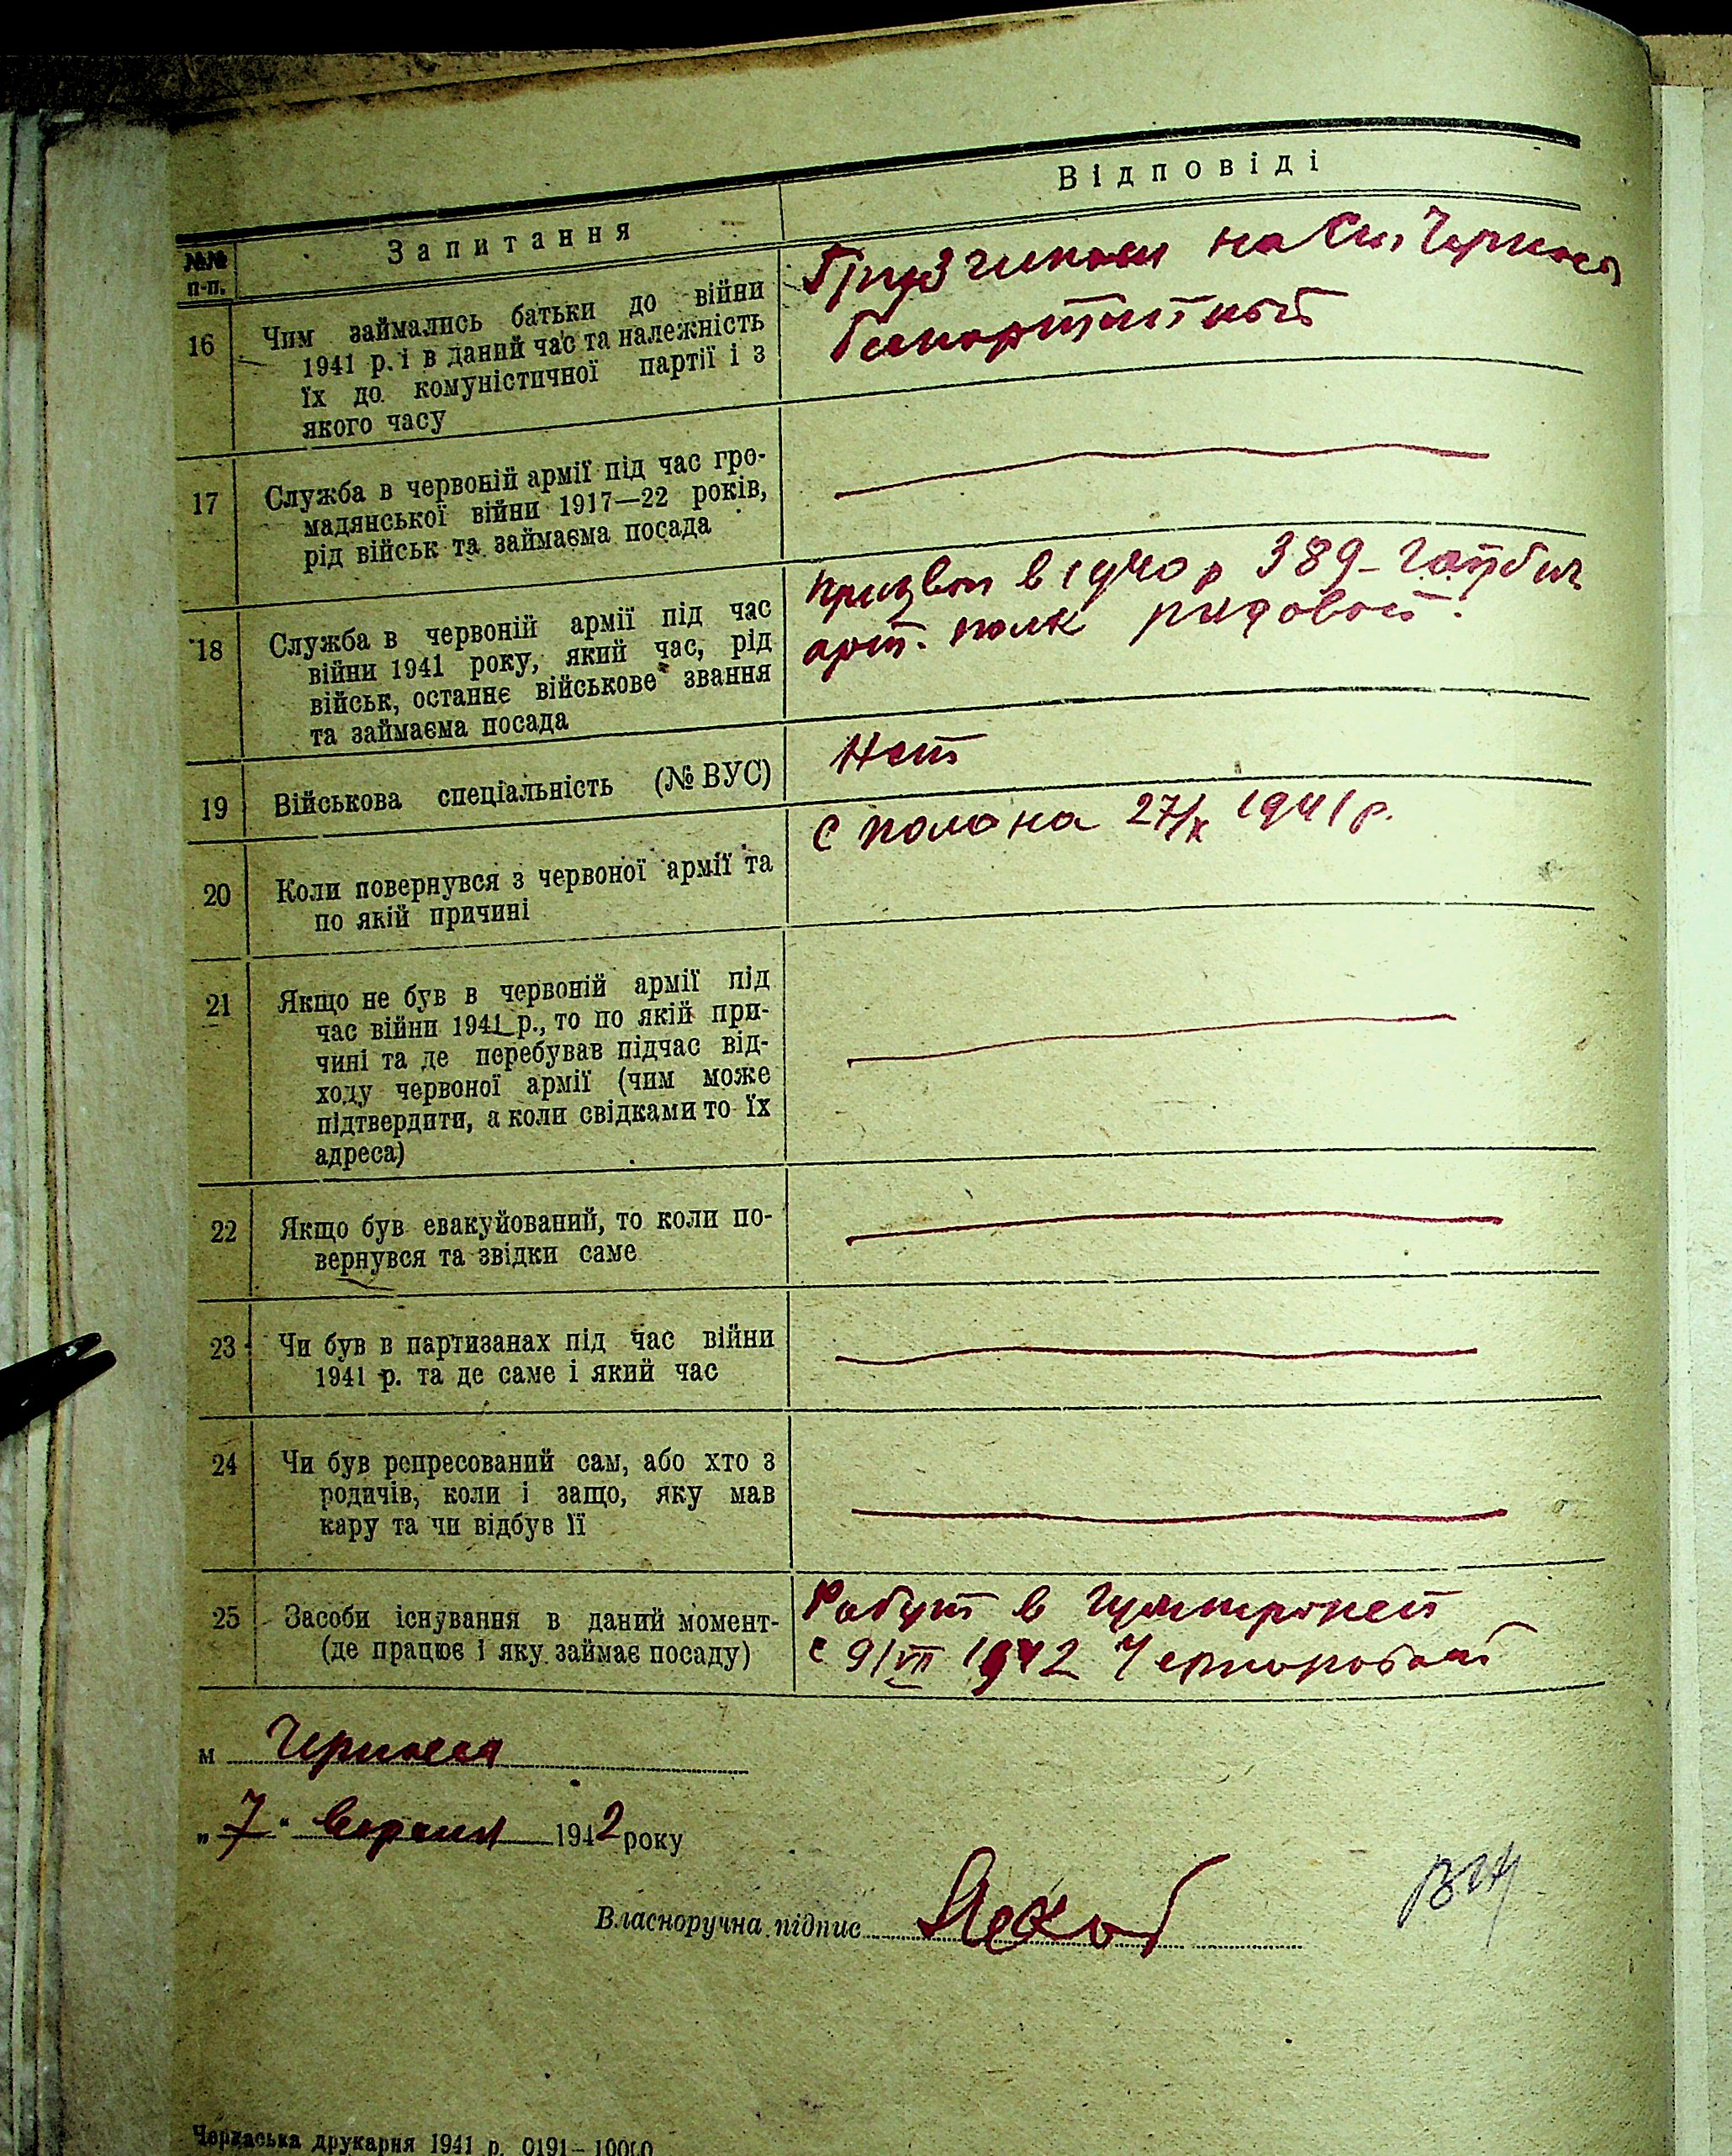 Відповіді
№№ п-п.
Запитання
16
Чим займались батьки до війни
1941 р. і в даний час та належність
їх до комуністичної партії і з
якого часу
на Ст. Черкаси
17
Служба в червоній армії під час гро-
мадянської війни 1917—22 років,
рід військ та займаєма посада
18
Служба в червоній армії під час
війни 1941 року, який час, рід
військ, останнє військове звання
та займаєма посада
Призван в 1940 р 389-
арт. полк рядовой.
19
Військова спеціальність (№ ВУС)
Нет
20
Коли повернувся з червоної армії та
по якій причині
С полона 27/X 1941 р.
21
Якщо не був в червоній армії під
час війни 1941 р., то по якій при-
чині та де перебував підчас від-
ходу червоної армії (чим може
підтвердити, а коли свідками то їх
адреса)
22
Якщо був евакуйований, то коли по-
вернувся та звідки саме
23
Чи був в партизанах під час війни
1941 р. та де саме і який час
24
Чи був репресований сам, або хто з
родичів, коли і защо, яку мав
кару та чи відбув її
25
Засоби існування в даний момент-
(де працює і яку займає посаду)
в
с 9/VII 1942
м Черкаси
„7“ вересня 1942 року
Власноручна підпис
Черкаська друкарня 1941 р. 0191—